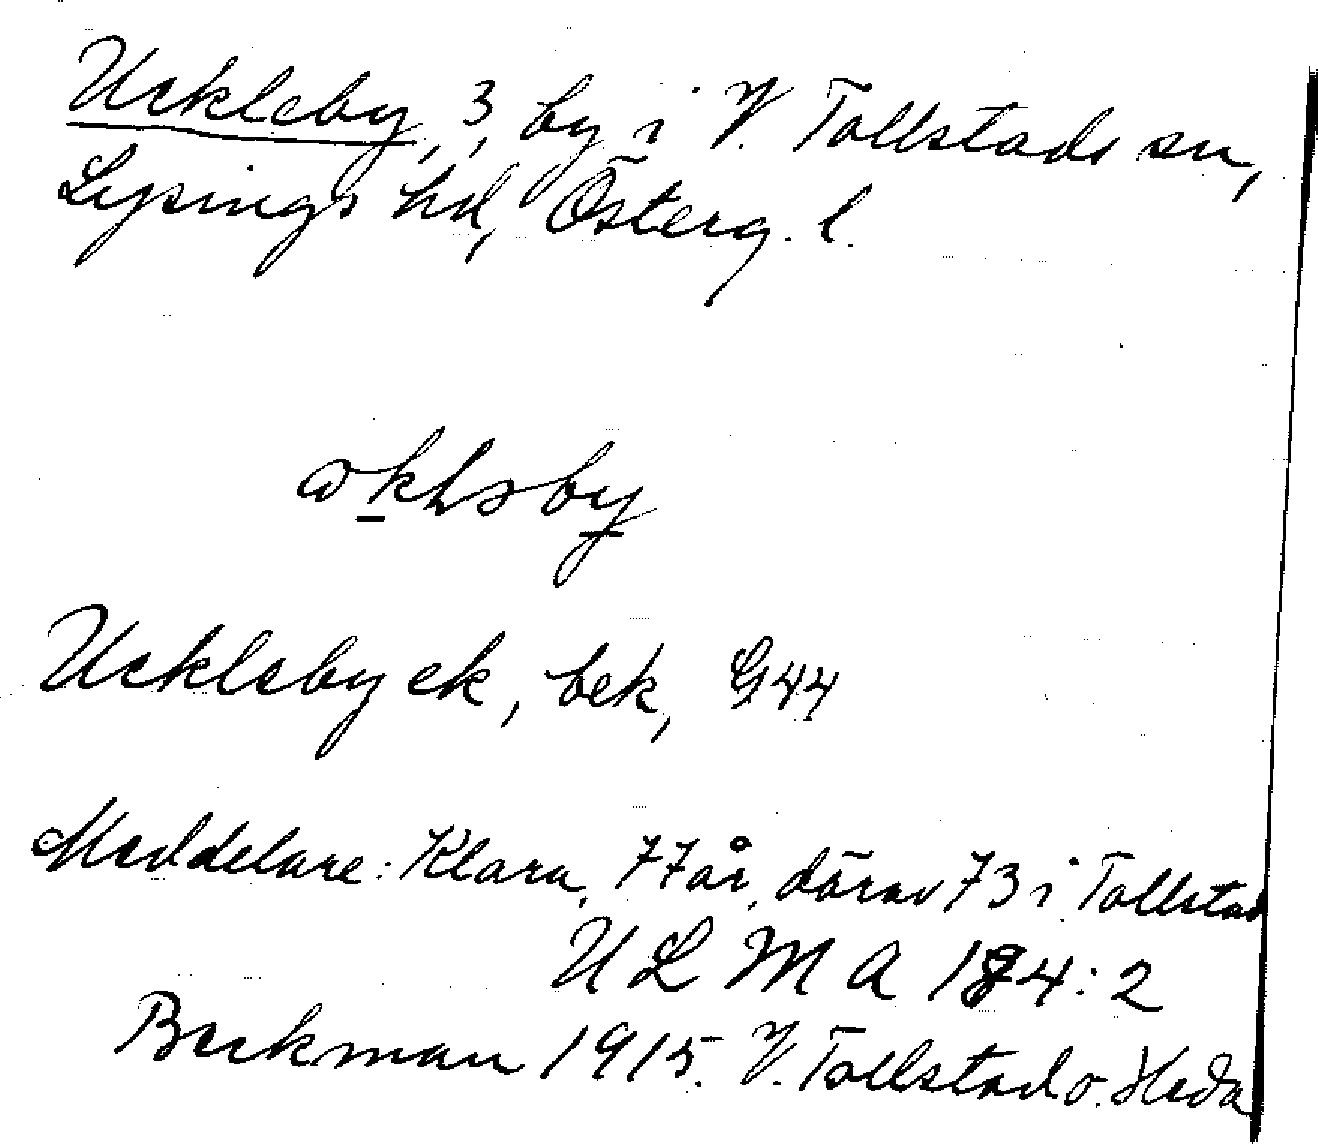 Uckleby, 3, by i V. Tollstads sn,
Lysings hd, Österg. l.
Ucklebyek, bek, G44
Meddelare: Klara, 77 år, därav 73 i Tollstad
ULMA 184:2
Beckman 1915. V. Tollstad o. Heda